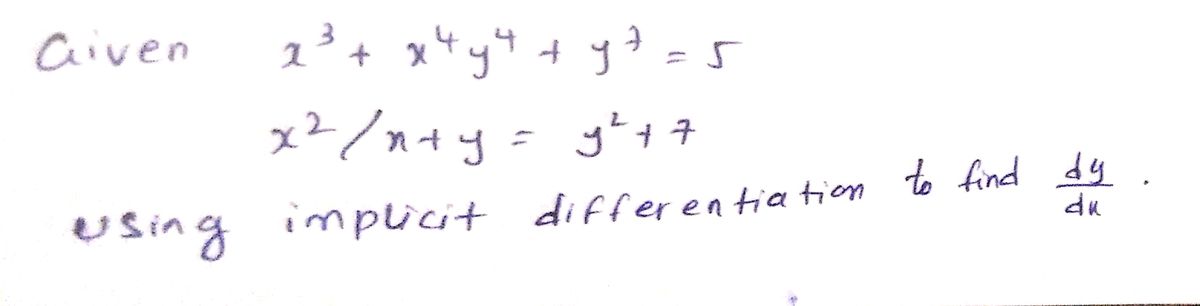 Given x³ + x⁴y⁴ + y⁷ = 5
x²/x+y = y² + 7
using implicit differentiation to find dy/dx.